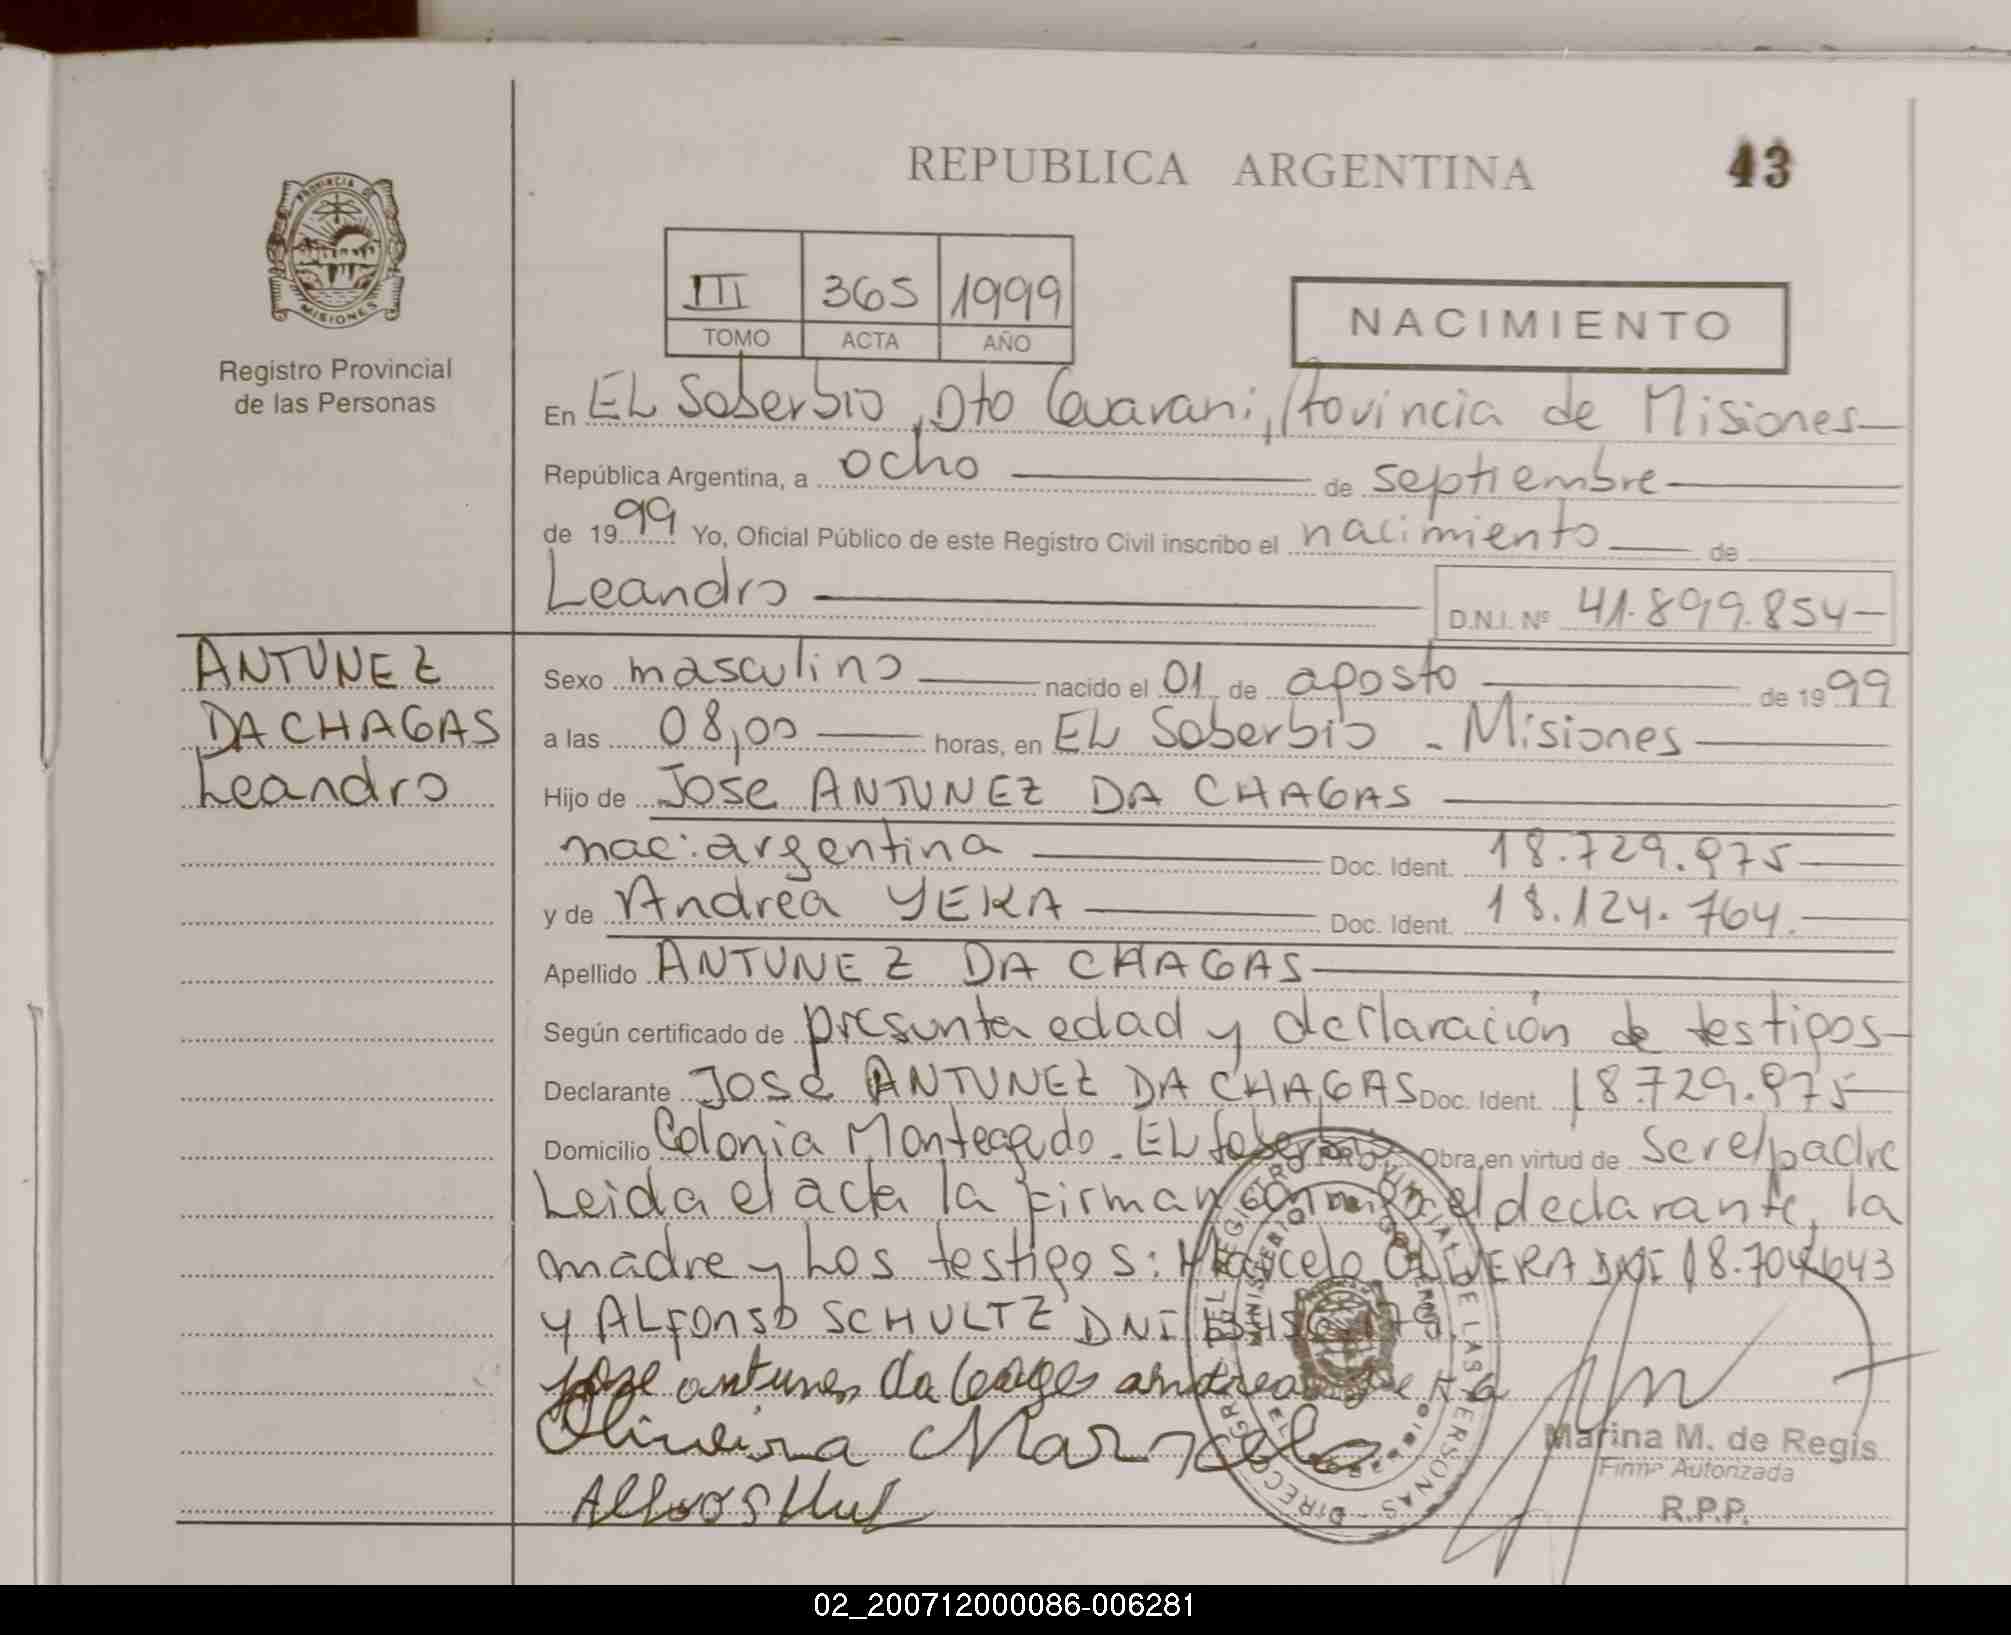 REPUBLICA ARGENTINA
43
PROVINCIA DE MISIONES
Registro Provincial
de las Personas
III 365 1999
TOMO ACTA AÑO
NACIMIENTO
En EL Soberbio, Dto Guarani, Provincia de Misiones
República Argentina, a ocho de septiembre
de 1999 Yo, Oficial Público de este Registro Civil inscribo el nacimiento de
Leandro
D.N.I. Nº 41.899.854
ANTUNEZ
DA CHAGAS
Leandro
Sexo masculino nacido el 01 de agosto de 1999
a las 08,00 horas, en EL Soberbio - Misiones
Hijo de Jose ANTUNEZ DA CHAGAS
nac: argentina Doc. Ident. 18.729.975
y de Andrea YEKA Doc. Ident. 18.124.764.
Apellido ANTUNEZ DA CHAGAS
Según certificado de presunta edad y declaración de testigos
Declarante Jose ANTUNEZ DA CHAGAS Doc. Ident. 18.729.975
Domicilio Colonia Monteagudo. EL Soberbio Obra en virtud de ser el padre
Leida el acta la firman conmigo el declarante, la
madre y Los testigos: Marcelo OLIVERA DNI 18.704.643
y ALfonso SCHULTZ DNI
Jose antunes da
andrea
Oliveira Marcelo
Marina M. de Regis
Firma Autorizada
R.P.P.
02_200712000086-006281